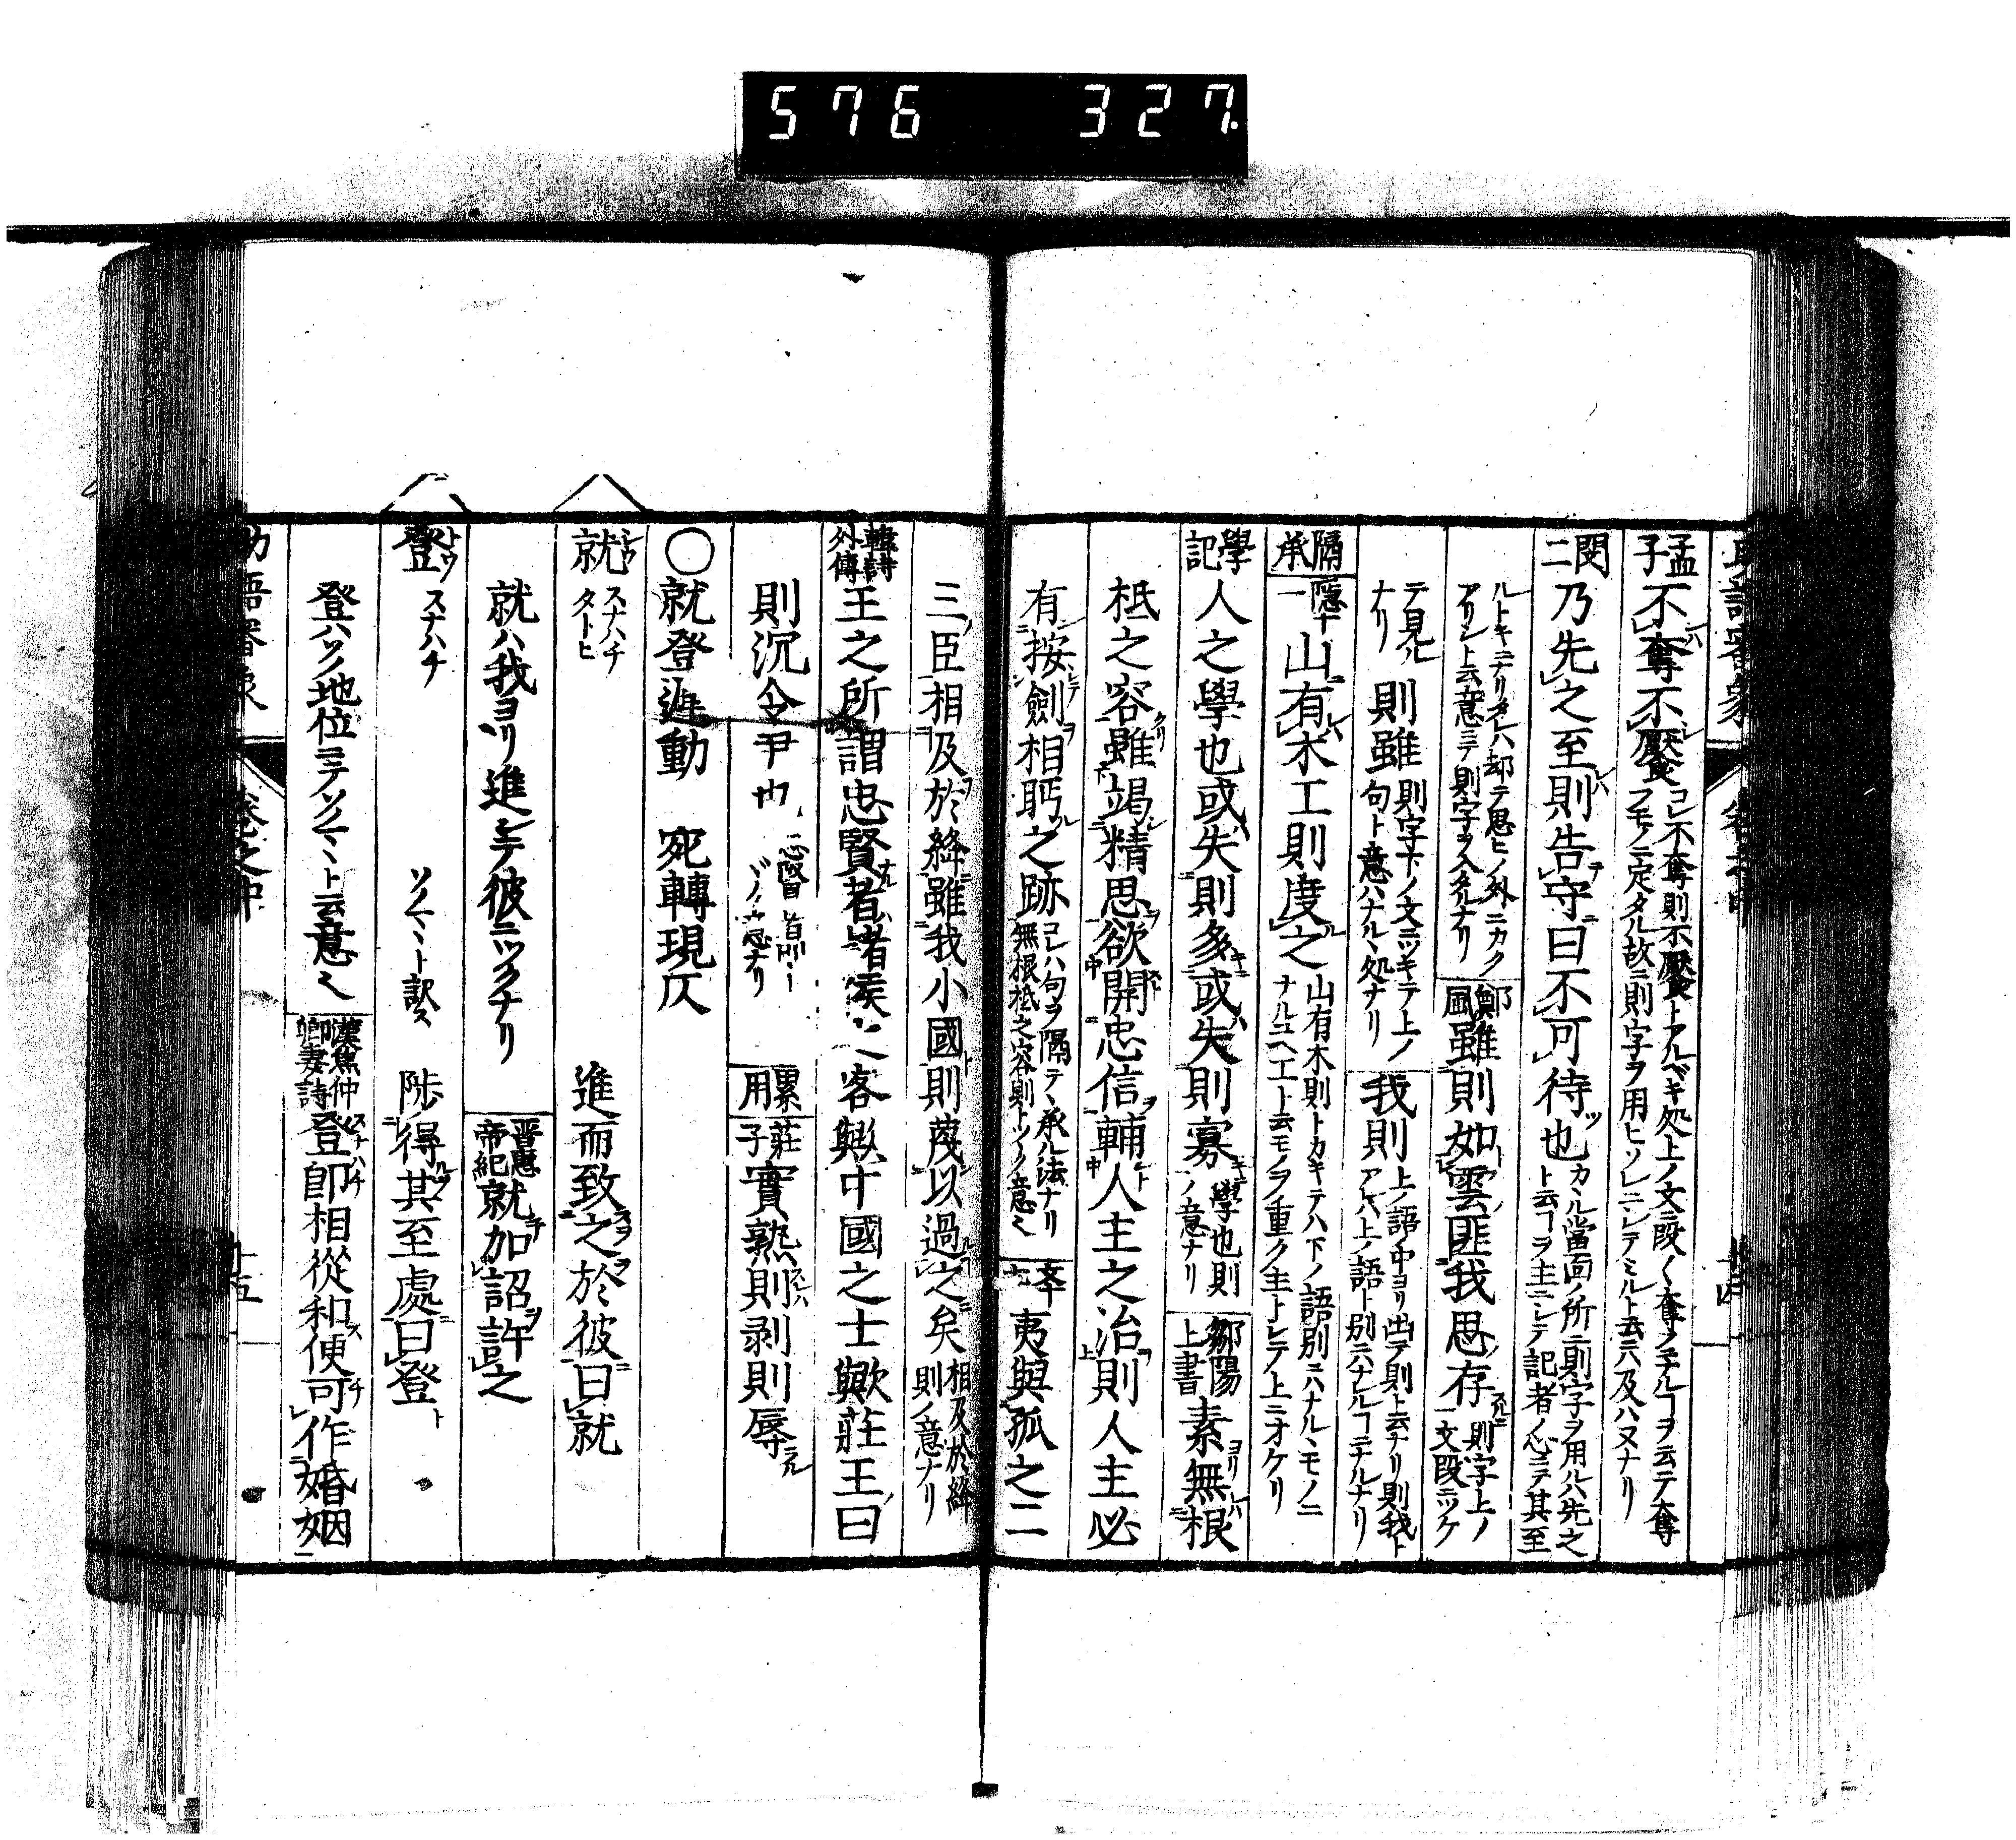 576 327.
孟子 不奪不饜 コレ不奪則不饜トアルベキ処上ノ文段〱奪ノ字アルヿヲ云テ奪フモノニ定タル故ニ則字ヲ用ヒソレニシテミルト云ニハ及ハヌナリ
閔二 乃先之至則告守曰不可待也 カヽル當面ノ所ニ則字ヲ用ルハ先之ト云ヿヲ主ニシテ記者ノ心ニテ其至
ルトキニナリタレハ却テ思ヒノ外ニカクアリシト云意ニテ則字ヲ入タルナリ 鄭風 雖則如雲匪我思存 則字上ノ文段ニツケ
テ見ルナリ 則雖 則字下ノ文ニツキテ上ノ句ト意ハナルヽ処ナリ 我則 上ノ語ノ中ヨリ出テ則ト云ナリ則我トアレハ上ノ語ト別ニナルヿニナルナリ
隔承 隱十一 山有木工則度之 山有木則トカキテハ下ノ語別ニハナルヽモノニナルユヘ工ト云モノヲ重ク主トシテ上ニオケリ
學記 人之學也或失則多或失則寡 學也則ノ意ナリ 鄒陽上書 素無根
柢之容雖竭精思欲開忠信輔人主之治則人主必
有按劍相眄之跡 コレハ句ヲ隔テヽ承ル法ナリ無根柢之容則トツヽク意也 夷與孤之二
三臣相及於絳雖我小國則蔑以過之矣 相及於絳則ノ意ナリ
韓詩外傳 王之所謂忠賢者諸侯之客與中國之士歟莊王曰
則沉令尹也 累用 莊子 實熟則剥則辱
○就登進動 宛轉現仄
就 スナハチ タトヒ 進而致之於彼曰就
就ハ我ヨリ進ンテ彼ニツクナリ 晋惠帝紀 就加詔許之
登 トウ スナハチ ソノマヽト訳ス 陟得其至處曰登
登ハソノ地位ニテソノマヽト云意也 漢焦仲卿妻詩 登即相從和便可作婚姻